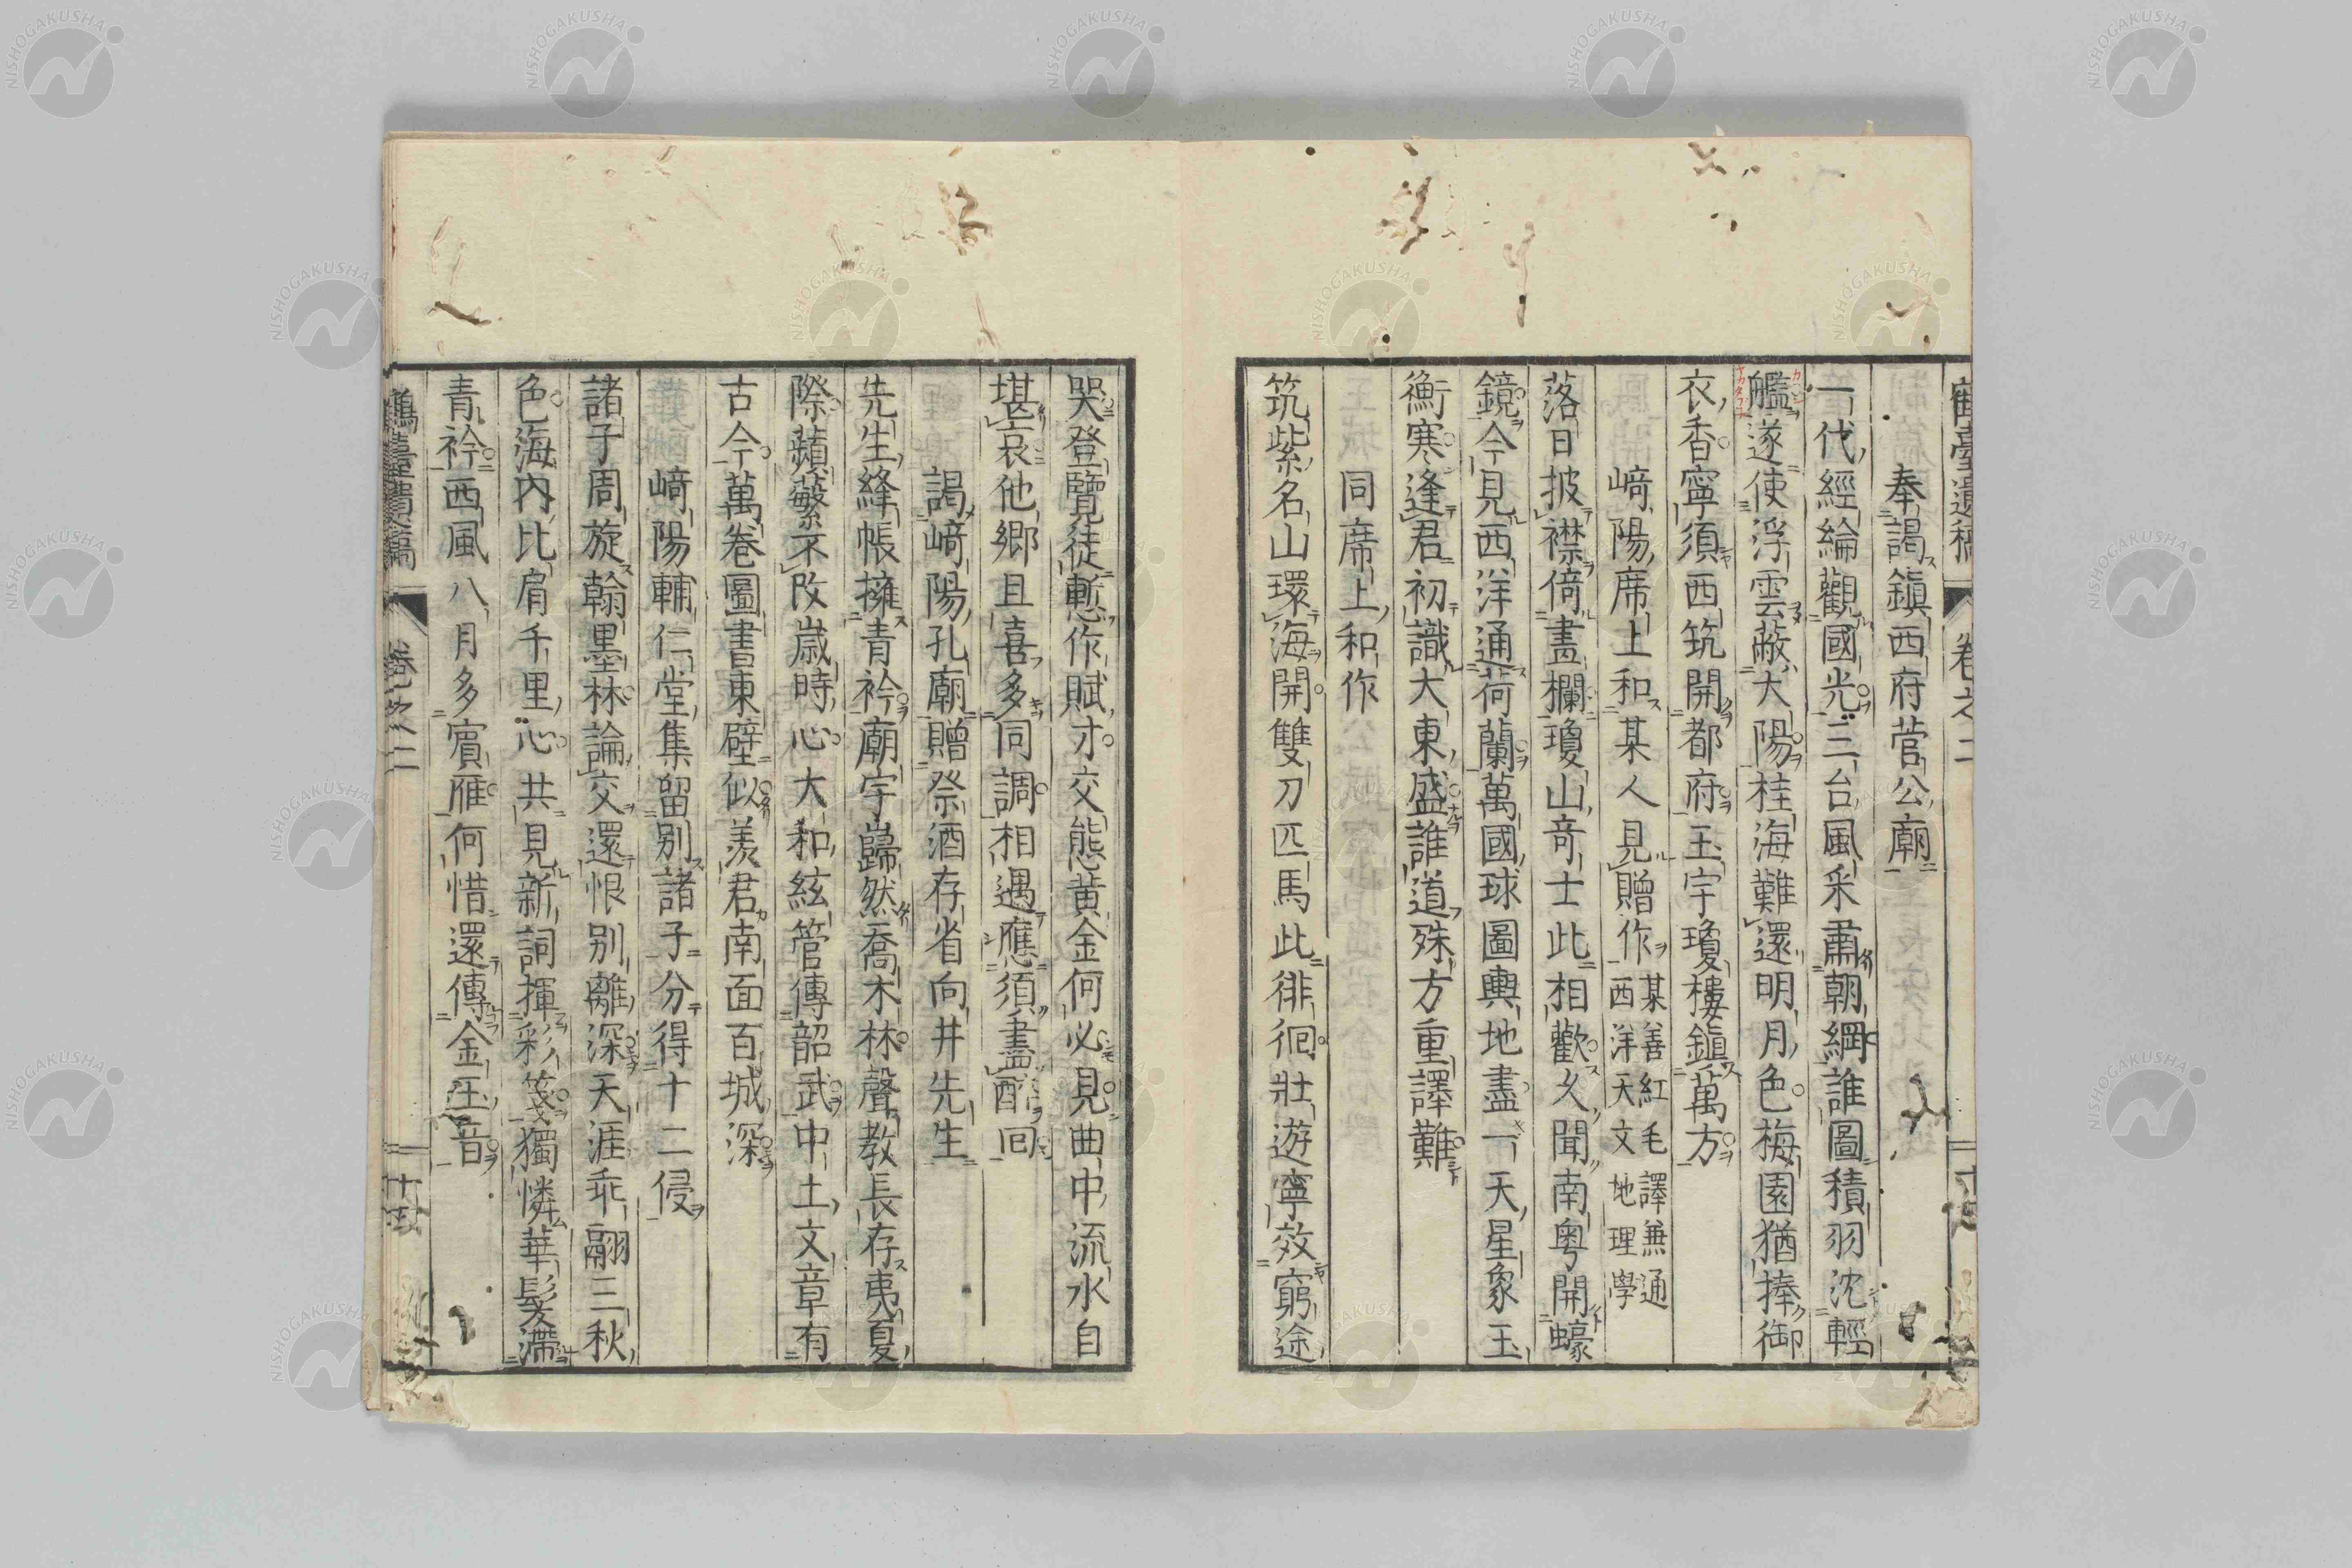 鶴臺遺稿 卷之二
奉謁鎭西府菅公廟
一代經綸觀國光三台風采肅朝綱誰圖積羽沈輕
艦遂使浮雲蔽大陽桂海難還明月色梅園猶捧御
衣香寧須西筑開都府玉宇瓊樓鎭萬方
﨑陽席上和某人見贈作某善紅毛譯兼通西洋天文地理學
落日披襟倚畫欄瓊山奇士此相歡久聞南粤開蠔
鏡今見西洋通荷蘭萬國球圖輿地盡一天星象玉
衡寒逢君初識大東盛誰道殊方重譯難
同席上和作
筑紫名山環海開雙刀匹馬此徘徊壯遊寧效窮途
哭登覽徒慙作賦才交態黄金何必見曲中流水自
堪哀他鄉且喜多同調相遇應須盡醉囘
謁﨑陽孔廟贈祭酒存省向井先生
先生絳帳擁青衿廟宇巋然喬木林聲教長存夷夏
際蘋蘩不改歲時心大和絃管傳韶武中土文章有
古今萬卷圖書東壁似羨君南面百城深
﨑陽輔仁堂集留別諸子分得十二侵
諸子周旋翰墨林論交還恨別離深天涯乖翮三秋
色海內比肩千里心共見新詞揮彩箋獨憐華髮滯
青衿西風八月多賓雁何惜還傳金玉音
鶴臺遺稿 卷之二